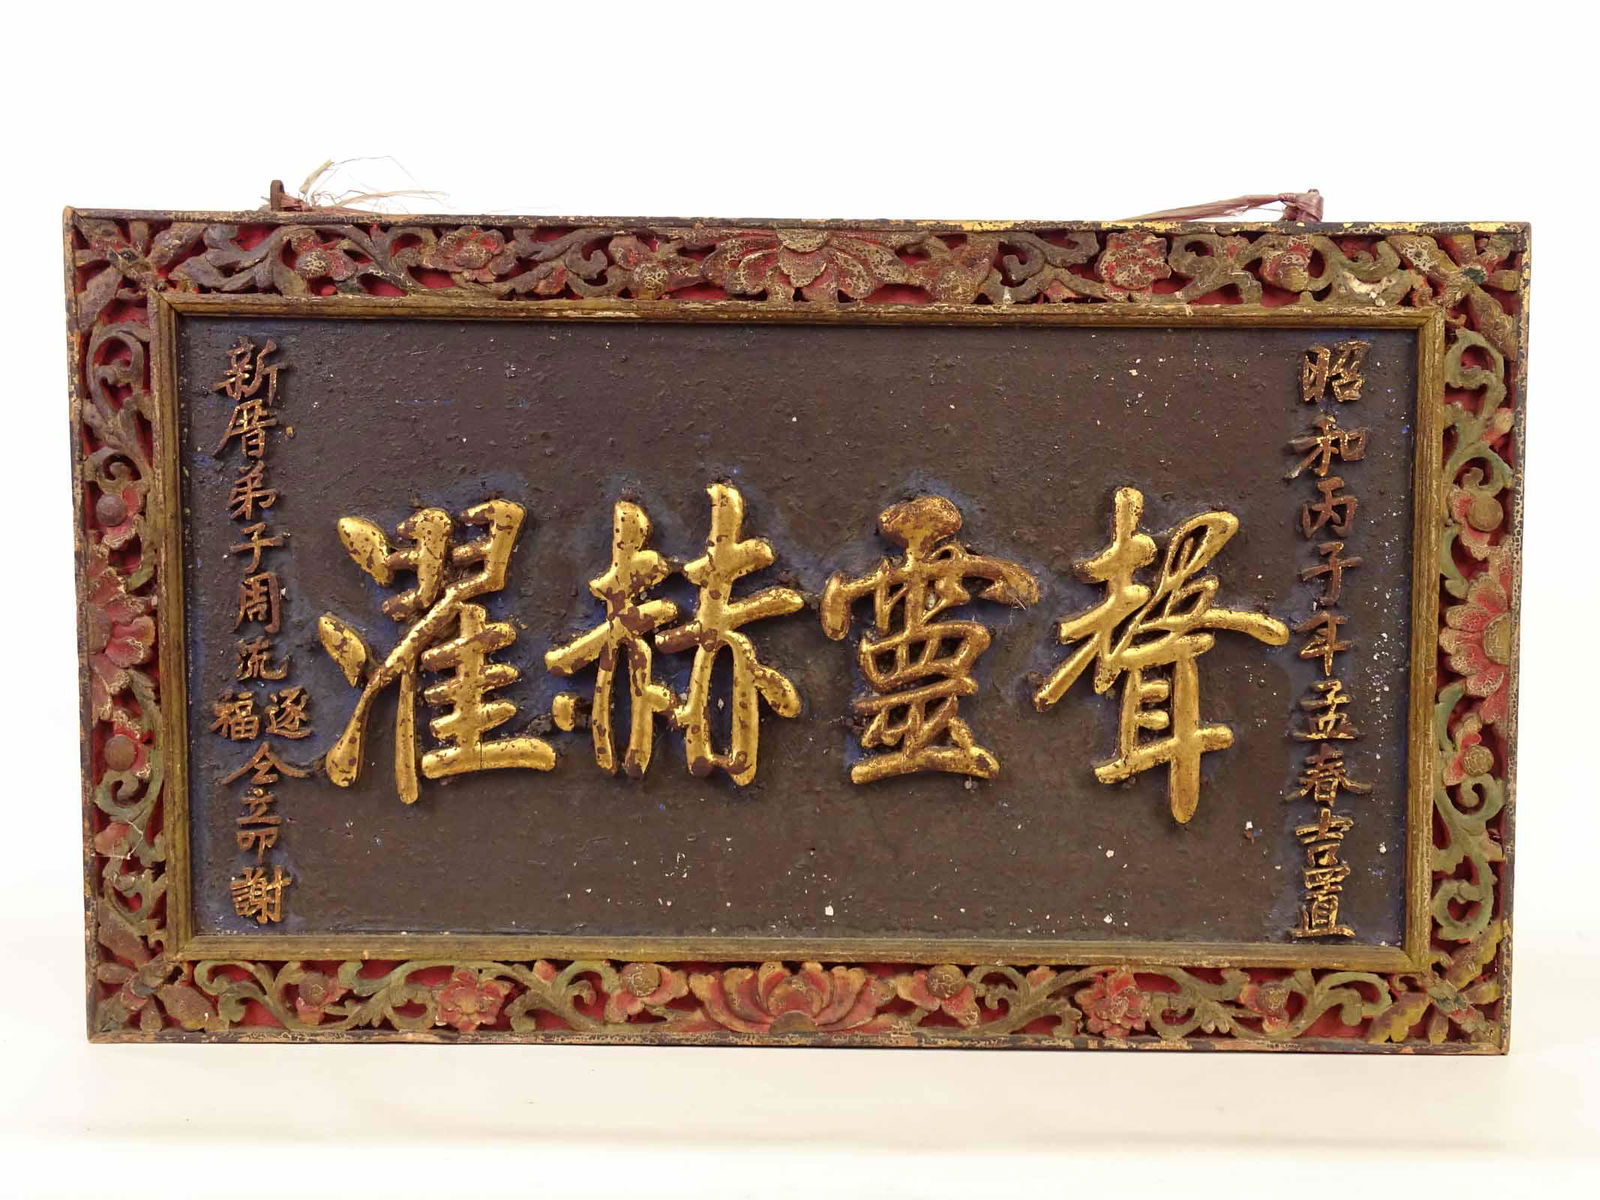 昭和丙子年孟春吉置
聲靈赫濯
新厝弟子周流逐福仝立叩謝